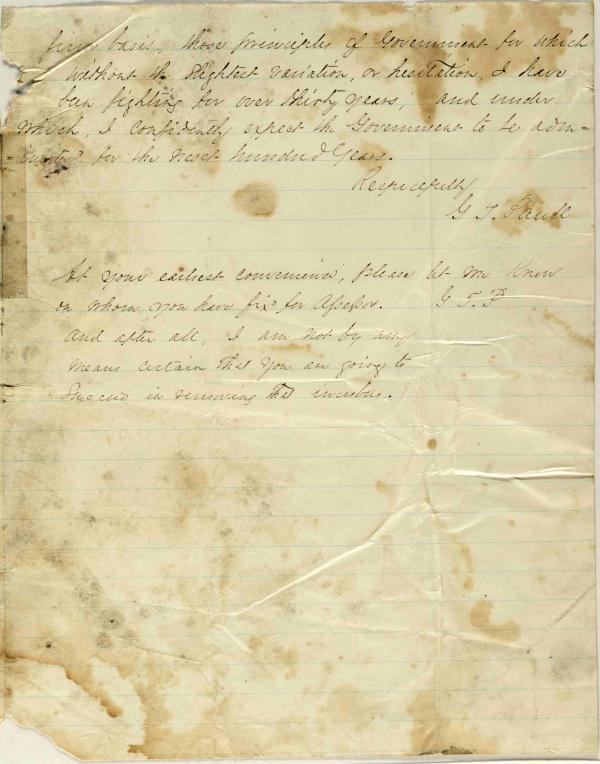 firm basis, those principles of Government for which
without the slightest variation, or hesitation, I have
been fighting for over thirty years, and under
which, I confidently expect the Government to be adm-
for the next hundred years.
Respectfully
G T. Paull
At your earliest convenience, please let me know
on whom you have fixd for Assessor. G T. P
And after all, I am not by any
means certain that you are going to
succeed in removing that incubus.